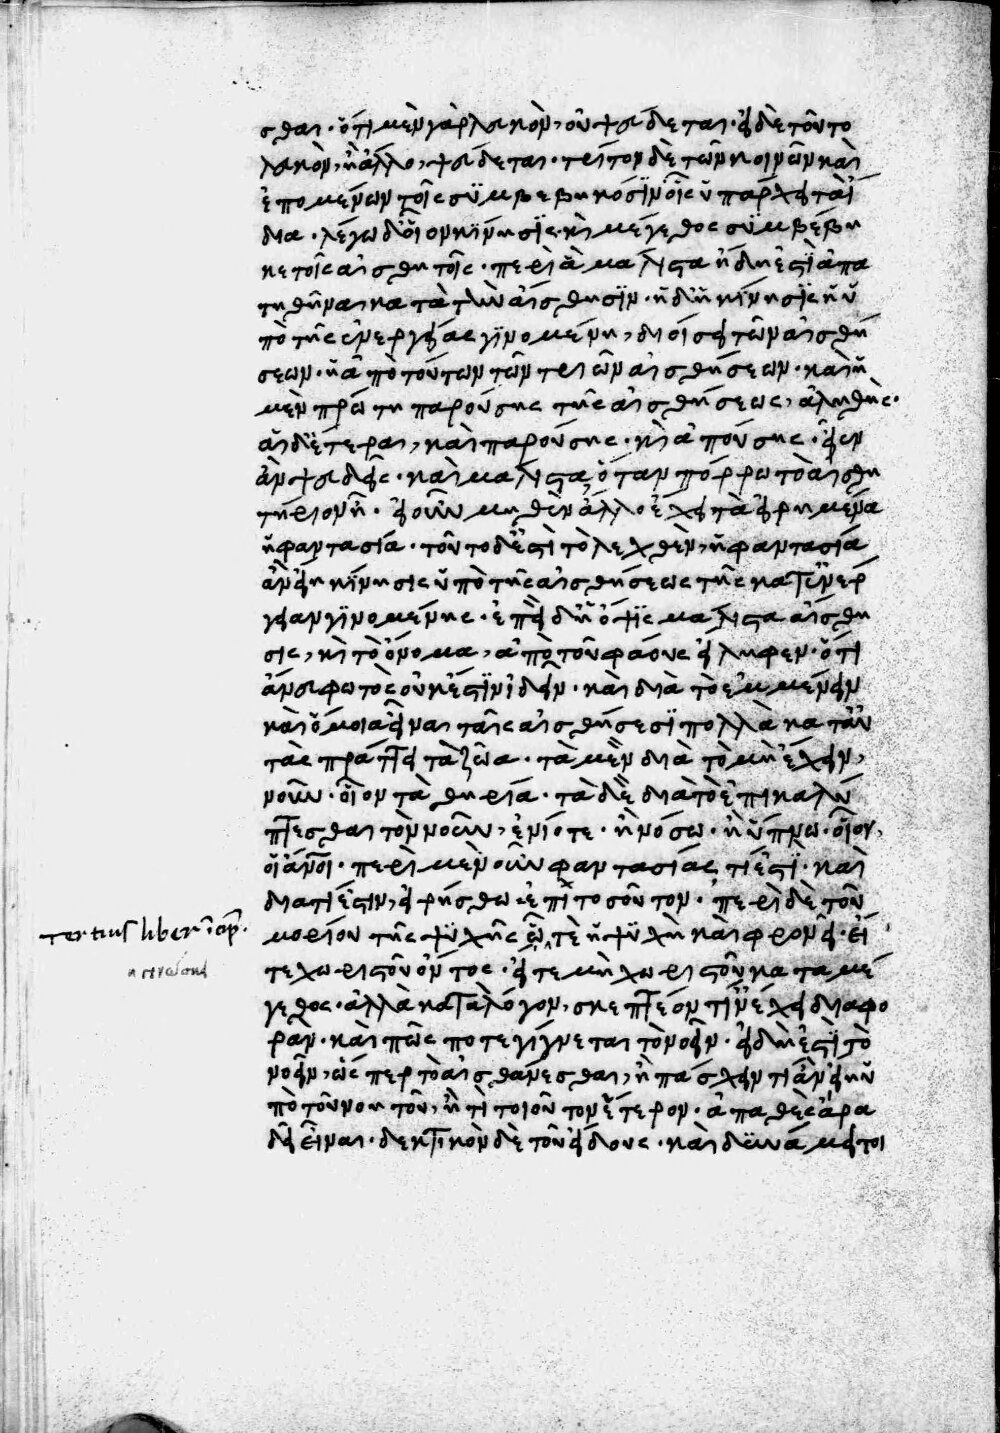 σθαι· ὅτι μὲν γὰρ λευκὸν, οὐ ψεύδεται· εἰ δὲ τοῦτο
λευκὸν, ἢ ἄλλο, ψεύδεται· τρίτον δὲ τῶν κοινῶν καὶ
ἑπομένων τοῖς συμβεβηκόσιν οἷς ὑπάρχει τὰ ἴ
δια· λέγω δ' οἷον κίνησις καὶ μέγεθος συμβέβη
κε τοῖς αἰσθητοῖς· περὶ ἃ μάλιστα ἤδη ἐστὶ ἀπα
τηθῆναι κατὰ τὴν αἴσθησιν· ἡ δὴ κίνησις ἡ ὑ
πὸ τῆς ἐνεργείας γινομένη, διοίσει τῶν αἰσθή
σεων· ἡ ἀπὸ τούτων τῶν τριῶν αἰσθήσεων· καὶ ἡ
μὲν πρώτη παρούσης τῆς αἰσθήσεως, ἀληθής·
αἱ δ' ἕτεραι, καὶ παρούσης· καὶ ἀπούσης· εἶεν
ἂν ψευδεῖς· καὶ μάλιστα ὅταν πόρρω τὸ αἰσθη
τήριον ἦ· εἰ οὖν μηθὲν ἄλλο ἔχει τὰ εἰρημένα
ἢ φαντασία· τοῦτο δ' ἐστὶ τὸ λεχθὲν, ἡ φαντασία
ἂν εἴη κίνησις ὑπὸ τῆς αἰσθήσεως τῆς κατ' ἐνέρ
γειαν γινομένης· ἐπεὶ δ' ἡ ὄψις μάλιστα αἴσθη
σις, καὶ τὸ ὄνομα, ἀπὸ τοῦ φάους εἴληφεν· ὅτι
ἄνευ φωτὸς οὐκ ἔστιν ἰδεῖν· καὶ διὰ τὸ ἐμμένειν
καὶ ὅμοια εἶναι ταῖς αἰσθήσεσι πολλὰ κατ' αὐ
τὰς πράττει τὰ ζῶα· τὰ μὲν διὰ τὸ μὴ ἔχειν,
νοῦν· οἷον τὰ θηρία· τὰ δὲ διὰ τὸ ἐπικαλύ
πτεσθαι τὸν νοῦν, ἐνίοτε· ἢ νόσω· ἢ ὕπνω· οἷον,
οἱ ἄνοι· περὶ μὲν οὖν φαντασίας τί ἐστι· καὶ
διατί ἐστιν, εἰρήσθω ἐπὶ τοσοῦτον· περὶ δὲ τοῦ
μορίου τῆς ψυχῆς ὧ τε ἡ ψυχὴ καὶ φρονεῖ· εἴ
τε χωριστοῦ ὄντος· εἴτε μὴ χωριστοῦ κατα μέ
γεθος· ἀλλὰ κατὰ λόγον, σκεπτέον τίν' ἔχει διαφο
ράν· καὶ πῶς ποτε γίγνεται τὸ νοεῖν· εἰ δή ἐστι τὸ
νοεῖν, ὥσπερ τὸ αἰσθάνεσθαι, ἢ πάσχειν τι ἂν εἴη ὑ
πὸ τοῦ νοητοῦ, ἤ τι τοιοῦτον ἕτερον· ἀπαθὲς ἄρα
δεῖ εἶναι· δεκτικὸν δὲ τοῦ εἴδους· καὶ δυνάμει τοι
tertius liber